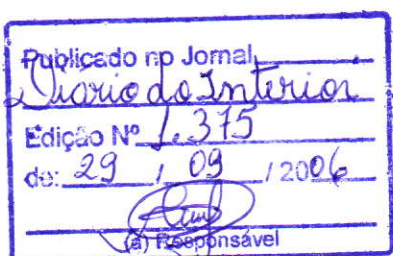 Publicado no Jornal
Diário do Interior
Edição Nº 1.375
de: 29 / 09 / 2006
(a) Responsável